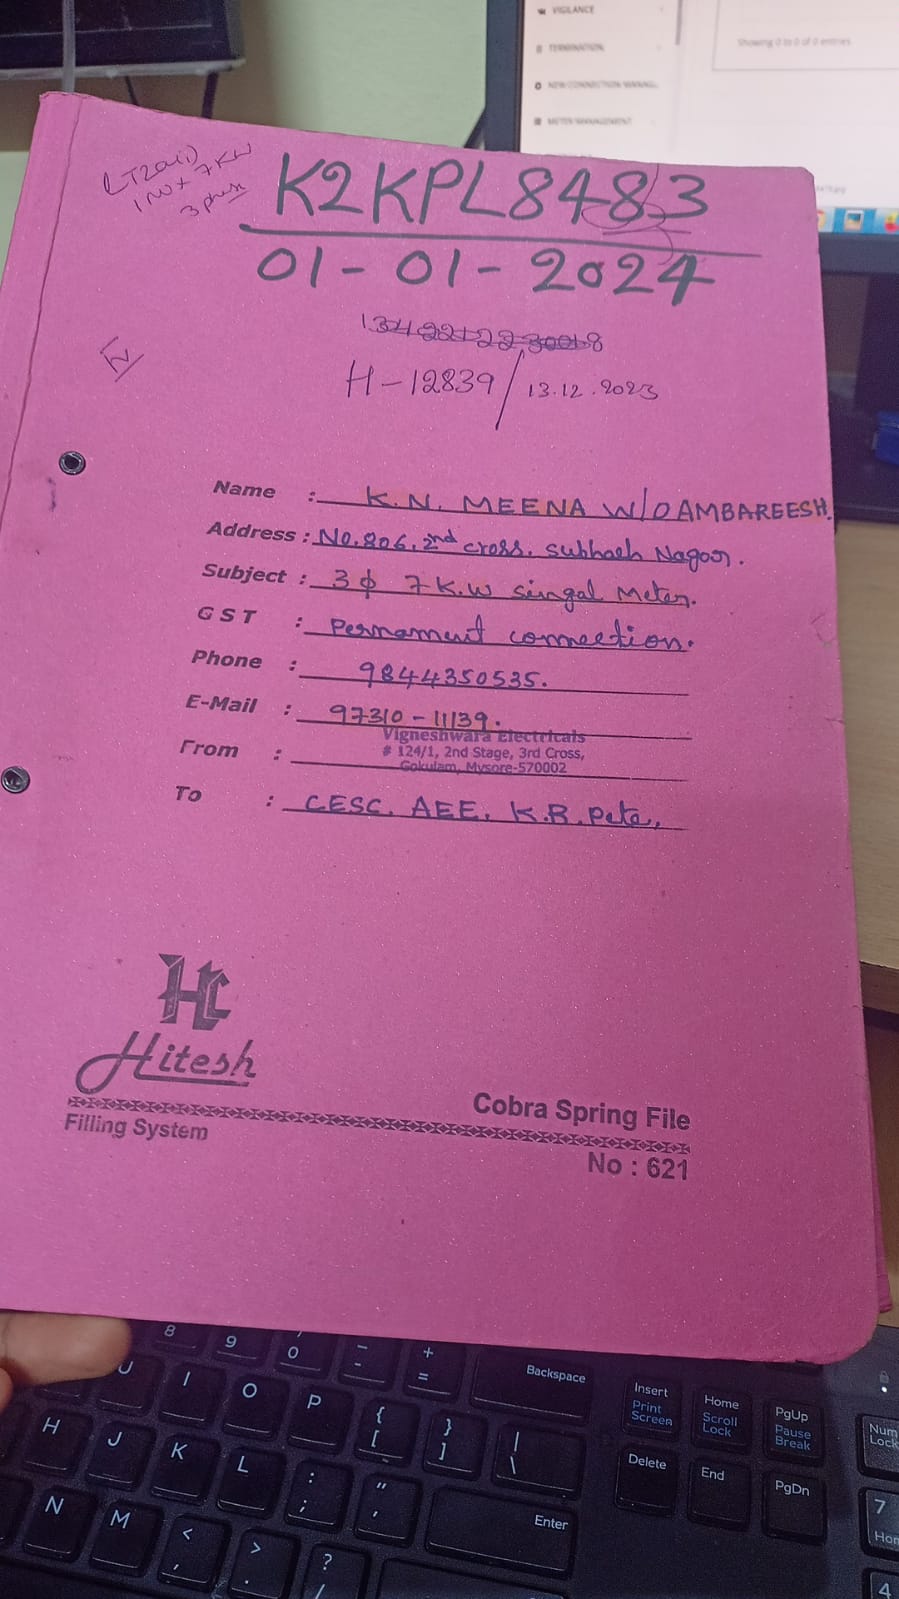 VIGILANCE
TERMINATION
NEW CONNECTION MANAG...
METER MANAGEMENT
Showing 0 to 0 of 0 entries
LT2a(i)
1No x 7KW
3 phase
K2KPL8483
01-01-2024
H-12839/13.12.2023
Name : K.N. MEENA W/O AMBAREESH.
Address : No.806, 2nd cross. Subhash Nagar.
Subject : 3ф 7K.W singal Meter.
GST : Permanent connection.
Phone : 9844350535.
E-Mail : 97310-11139.
From : Vigneshwara Electricals
# 124/1, 2nd Stage, 3rd Cross,
Gokulam, Mysore-570002
To : CESC. AEE. K.R.Pete.
HC
Hitesh
Filling System
Cobra Spring File
No : 621
8 9 0 - - + =
Backspace
U I O P { [ } ] | \
Insert
Print Screen
Home
Scroll Lock
PgUp
Pause Break
Num Lock
H J K L : ; " '
Enter
Delete
End
PgDn
7
Hom
N M < , > . ? /
4